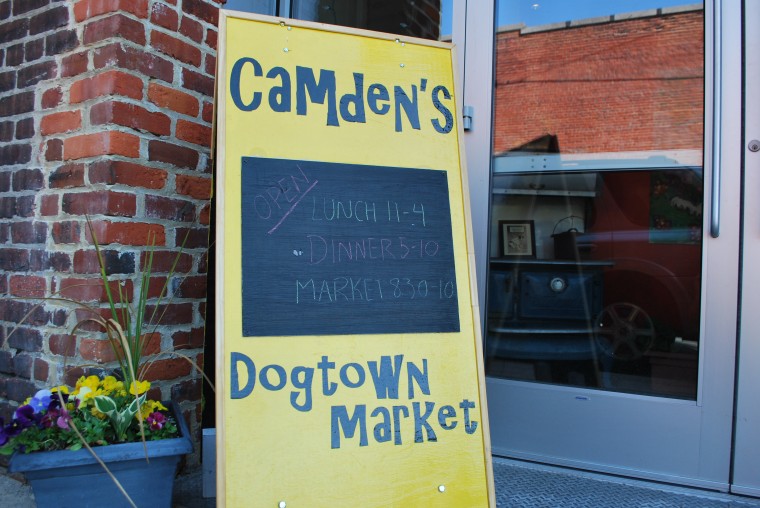 Camden's
OPEN
LUNCH 11-4
DINNER 5-10
MARKET 830-10
Dogtown
Market